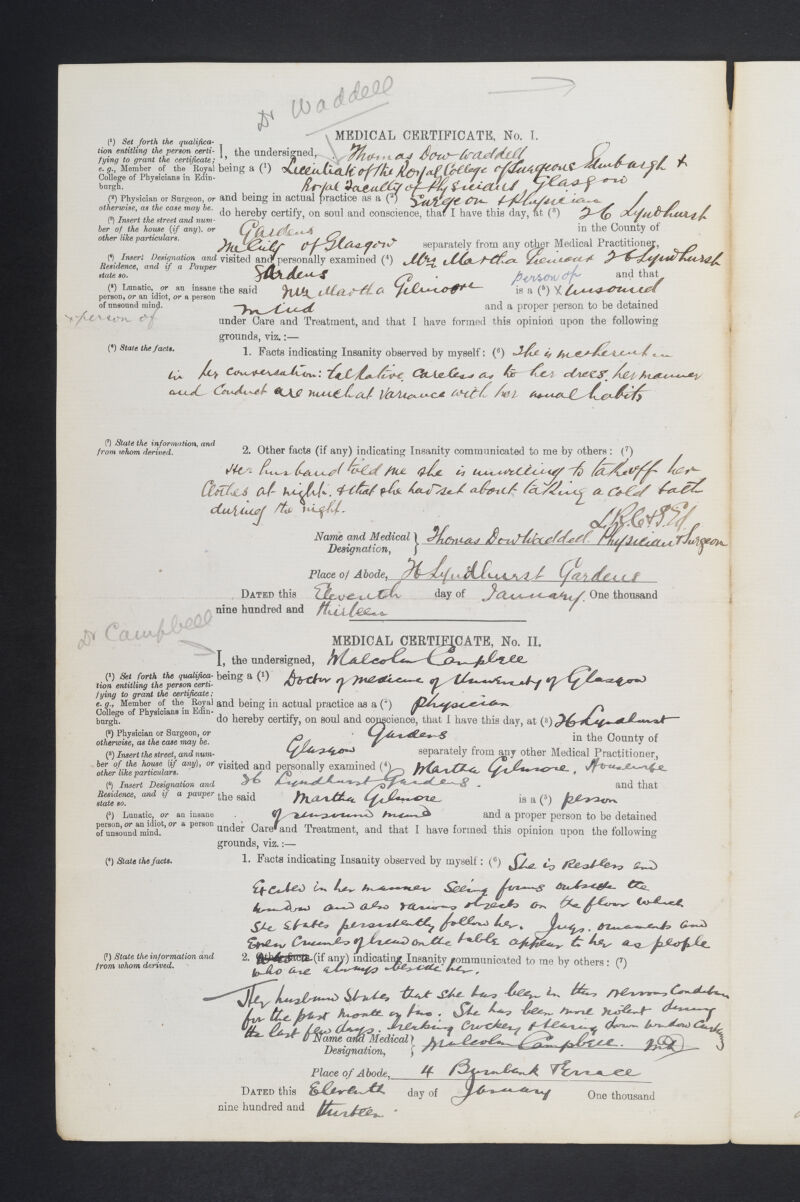 Dr Waddell
MEDICAL CERTIFICATE, No. I.
(¹) Set forth the qualifica-
tion entitling the person certi-
fying to grant the certificate;
e.g., Member of the Royal
College of Physicians in Edin-
burgh.
I, the undersigned, Thomas Dow Waddell
being a (¹) Licentiate of the Royal College of Surgeons Edinburgh &
Royal Faculty of Physicians Glasgow
(²) Physician or Surgeon, or
otherwise, as the case may be.
and being in actual practice as a (²) Surgeon & Physician
(³) Insert the street and num-
ber of the house (if any), or
other like particulars.
do hereby certify, on soul and conscience, that I have this day, at (³) 26 Lyndhurst
Gardens in the County of
The City of Glasgow separately from any other Medical Practitioner,
(⁴) Insert Designation and
Residence, and if a Pauper
state so.
visited and personally examined (⁴) Mrs Martha Gilmour 26 Lyndhurst
Gardens and that
(⁵) Lunatic, or an insane
person, or an idiot, or a person
of unsound mind.
x person of
person of
the said Mrs Martha Gilmoore is a (⁵) x unsound
mind and a proper person to be detained
under Care and Treatment, and that I have formed this opinion upon the following
grounds, viz.:—
(⁶) State the facts.
1. Facts indicating Insanity observed by myself: (⁶) She is incoherent in
in her conversation: talkative, careless as to her dress, her manner
and conduct are much at variance with her usual habits
(⁷) State the information, and
from whom derived.
2. Other facts (if any) indicating Insanity communicated to me by others: (⁷)
Her husband told me she is unwilling to take off her
clothes at night. & that she had set about taking a cold bath
during the night.
L.R.C.S. Ed.
Name and Medical Designation, Thomas Dow Waddell Physician & Surgeon
Place of Abode, 76 Lyndhurst Gardens
DATED this Eleventh day of January One thousand
nine hundred and thirteen
Dr Campbell
MEDICAL CERTIFICATE, No. II.
I, the undersigned, Malcolm Campbell
(¹) Set forth the qualifica-
tion entitling the person certi-
fying to grant the certificate;
e.g., Member of the Royal
College of Physicians in Edin-
burgh.
being a (¹) Doctor of medicine of University of Glasgow
and being in actual practice as a (²) Physician
do hereby certify, on soul and conscience, that I have this day, at (³) 26 Lyndhurst
(²) Physician or Surgeon, or
otherwise, as the case may be.
Gardens in the County of
(³) Insert the street, and num-
ber of the house (if any), or
other like particulars.
Glasgow separately from any other Medical Practitioner,
visited and personally examined (⁴) Martha Gilmore, Housewife
(⁴) Insert Designation and
Residence, and if a pauper
state so.
26 Lyndhurst Gardens. and that
the said Martha Gilmore is a (⁵) person
(⁵) Lunatic, or an insane
person, or an idiot, or a person
of unsound mind.
of unsound mind and a proper person to be detained
under Care and Treatment, and that I have formed this opinion upon the following
grounds, viz.:—
(⁶) State the facts.
1. Facts indicating Insanity observed by myself: (⁶) She is restless and
excited in her manner seeing forms outside the
window and also various objects on the floor which
she states persistently follow her. Jugs, ornaments and
even crumbs of bread on the table appear to her as people
who are always beside her.
(⁷) State the information and
from whom derived.
2. Other facts (if any) indicating Insanity communicated to me by others: (⁷)
Her husband states that she has been in this nervous condition
for the past month or two. She has been more violent during
the last few days. breaking crockery & tearing down window curtains
Name and Medical Designation, Malcolm Campbell. M.D.
Place of Abode, 4 Burnbank Terrace
DATED this Eleventh day of January One thousand
nine hundred and thirteen.